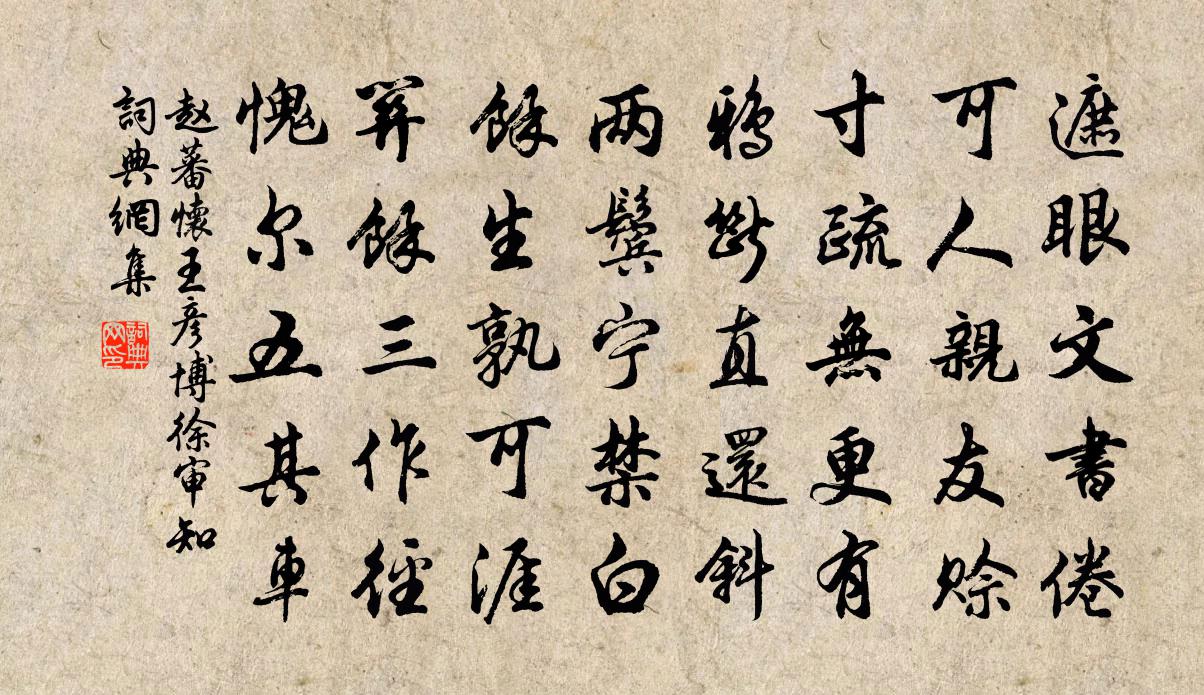 遮眼文書倦
可人親友賒
寸疏無更有
鴉斷直還斜
两鬓宁禁白
餘生孰可涯
開餘三作徑
愧尔五其車
赵蕃懷王彦博徐审知
詞典網集
詞典
网印